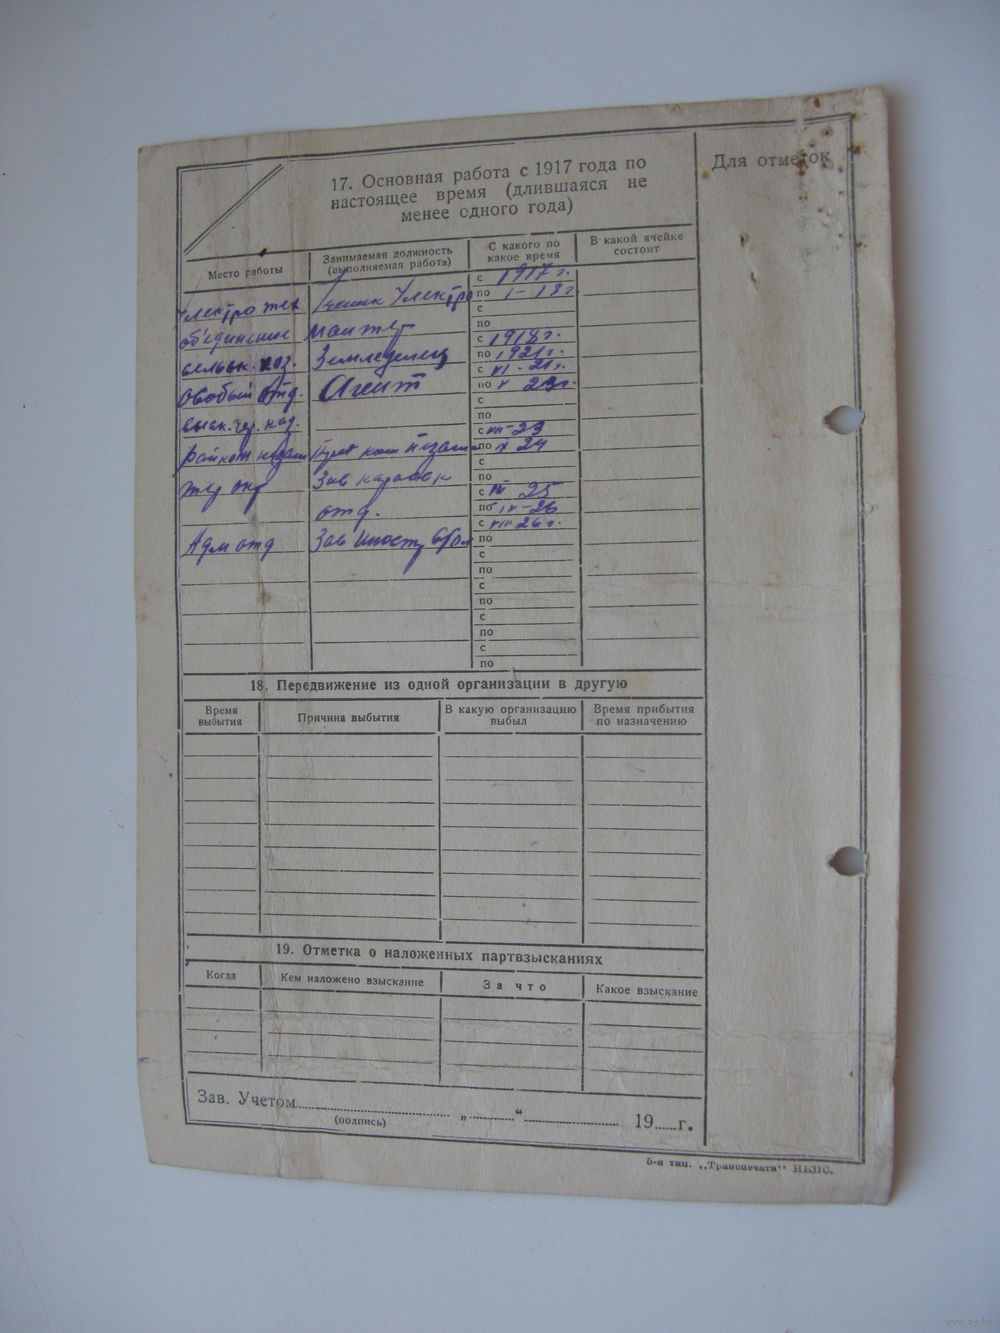 17. Основная работа с 1917 года по
настоящее время (длившаяся не
менее одного года)
Для отметок
Место работы
Занимаемая должность
(выполняемая работа)
С какого по
какое время
В какой ячейке
состоит
с 1917 г.
по 1-18 г
с
объединение монтер по
сельск. хоз. Земледелец с 1918 г.
по 1921 г.
Особый отд. Агент с VI-21 г.
по V
с
по
с VII-23
по X 24
с
Зав по
с III 25
отд. по IV-26
с VIII 26 г.
Адм отд Зав по
с
по
с
по
с
по
с
по
18. Передвижение из одной организации в другую
Время
выбытия
Причина выбытия
В какую организацию
выбыл
Время прибытия
по назначению
19. Отметка о наложенных партвзысканиях
Когда
Кем наложено взыскание
За что
Какое взыскание
Зав. Учетом „ “ 19 г.
(подпись)
5-я тип. „Транспечати“ НКПС.
www.ay.by